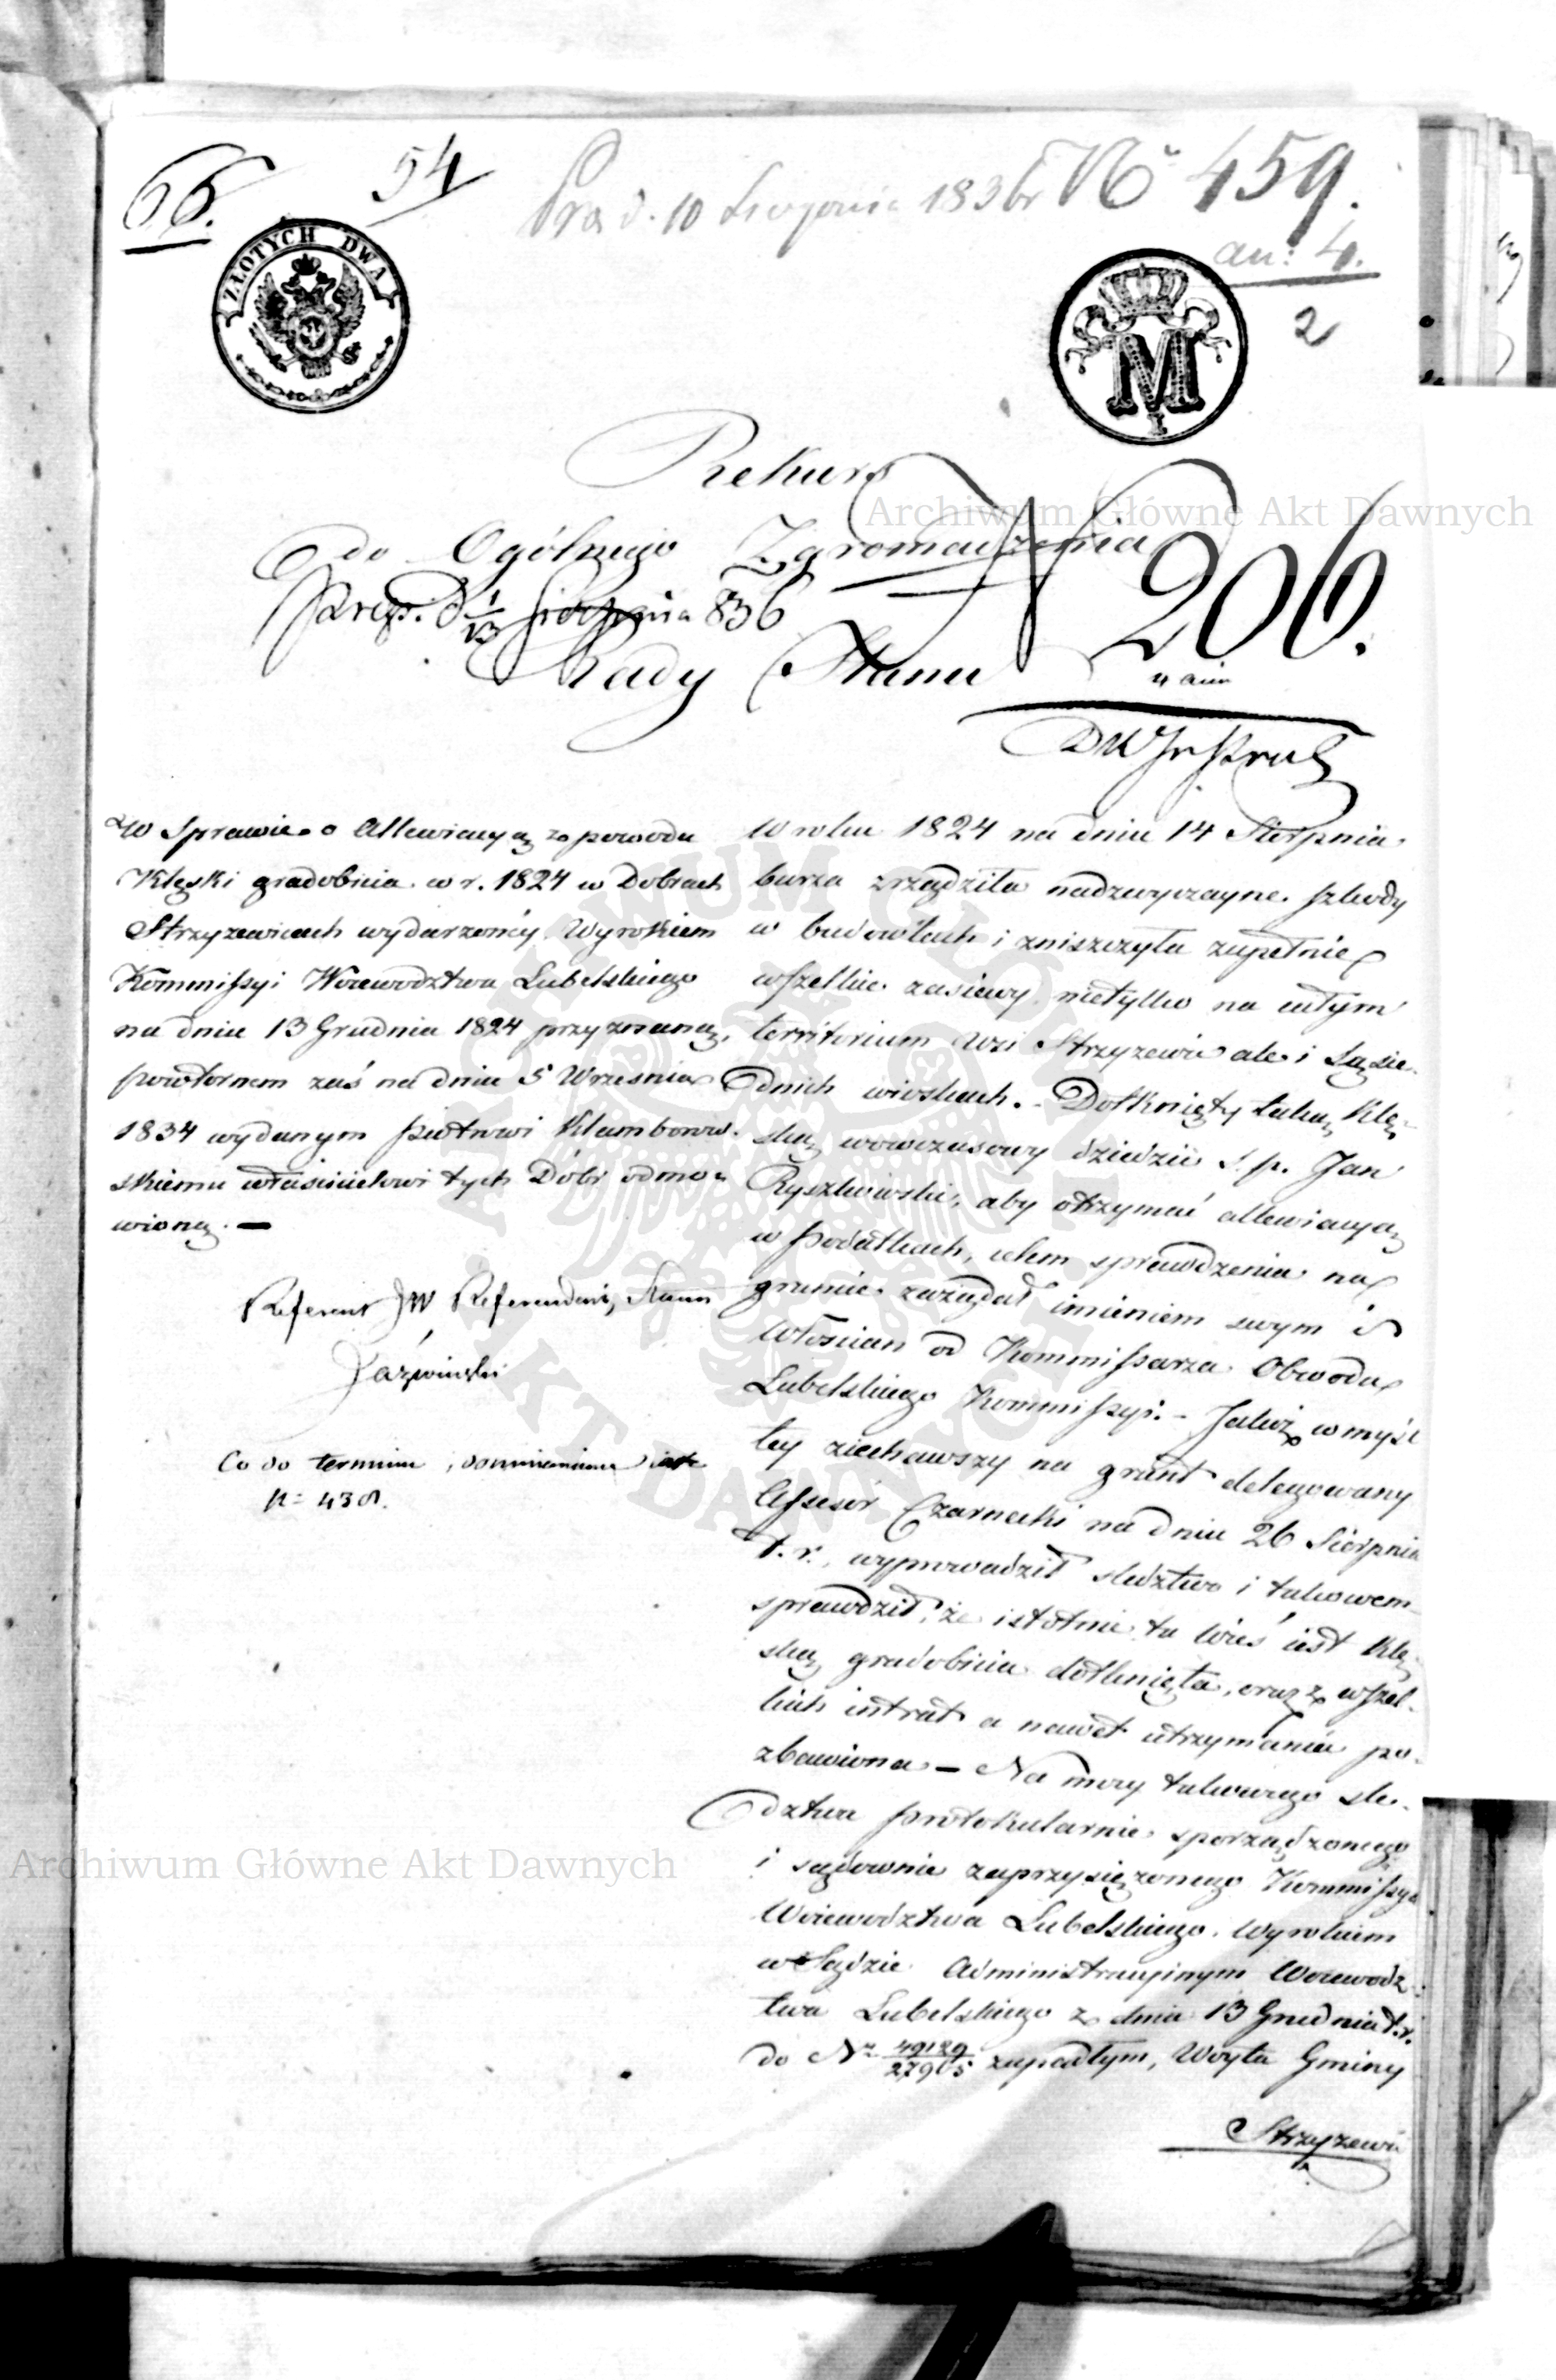 66.
54
d. 10 Sierpnia 1836 r No 459.
an: 4.
2
ZŁOTYCH DWA
M
I
Rekurs
do Ogólnego Zgromadzenia
Prez. d. 1/13 Sierpnia 836
N 206.
4 ann
Rady Stanu
W Sprawie o Allewiacyą z powodu
Klęski gradobicia w r. 1824 w Dobrach
Strzyzewicach wydarzoney Wyrokiem
Kommissyi Woiewodztwa Lubelskiego
na dniu 13 Grudnia 1824 przyznaną,
powtornem zaś na dniu 5 Wrzesnia
1834 wydanym Piotrowi Klamborow-
skiemu właścicielowi tych Dóbr odmo-
wioną. —
Referent JW Referendarz Stanu
Jaźwiński
Co do terminu, domniemanie iak
N= 438.
W roku 1824 na dniu 14 Sierpnia
burza zrządziła nadzwyczayne szkody
w budowlach i zniszczyła zupełnie
wszelkie zasiewy nietylko na całym
territorium Wsi Strzyzewic ale i sąsie-
dnich wioskach. - Dotknięty taką Klę-
ską wowczasowy dziedzic S. p. Jan
aby otrzymać allewiacyą
w podatkach, celem sprawdzenia na
gruncie zażądał imieniem swym i
Włościan od Kommissarza Obwodu
Lubelskiego Kommissyi. - Jakoż w myśl
tey ziechawszy na grunt delegowany
Assesór Czarnecki na dniu 26 Sierpnia
t. r., wyprowadził sledztwo i takowem
sprawdził, że istotnie ta Wieś iest Klę-
ską gradobicia dotknięta, oraz z wszel-
kich intrat a nawet utrzymania po-
zbawiona - Na mocy takowego sle-
dztwa protokularnie sporządzonego
i sądownie zaprzysiężonego Kommissya
Woiewodztwa Lubelskiego Wyrokiem
w Sądzie Administracyinym Woiewodz-
twa Lubelskiego z dnia 13 Grudnia t.r.
do Nr 49129/27905 zapadłym, Woyta Gminy
Strzyzewic
Archiwum Główne Akt Dawnych
Archiwum Główne Akt Dawnych
ARCHIWUM GŁÓWNE AKT DAWNYCH